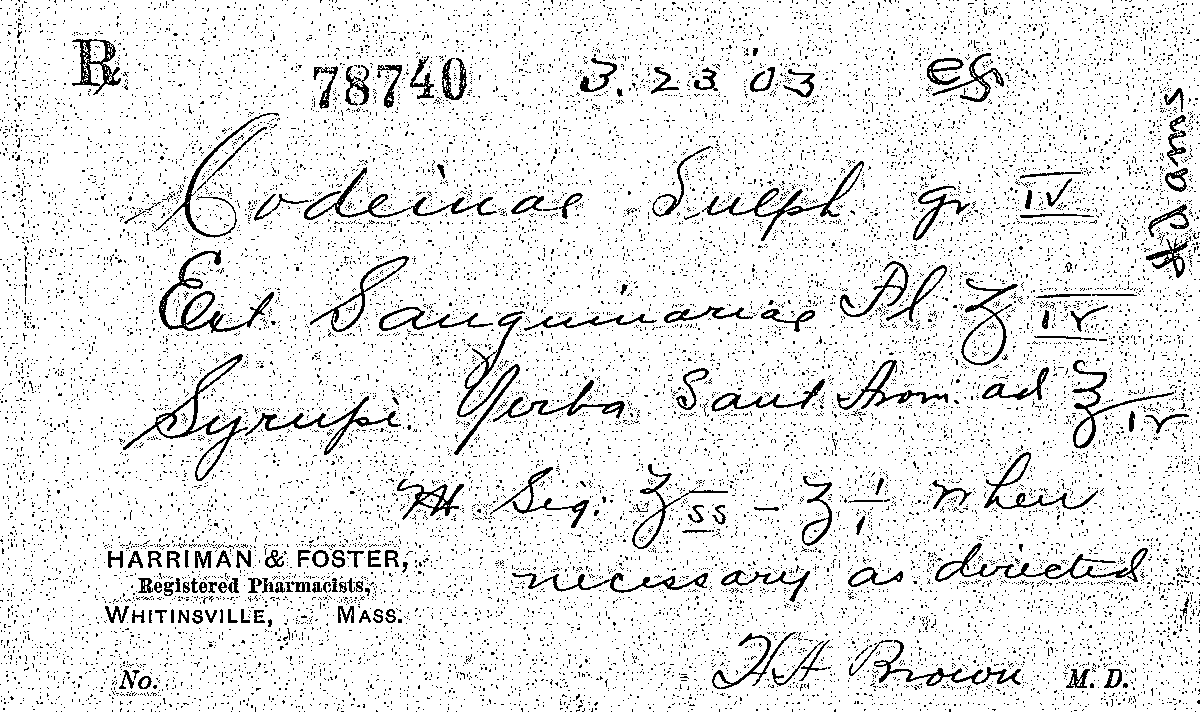 ℞ 78740 3. 23 '03
Codeinae Sulph. gr IV
Ext. Sanguinariae Fl. ʒ IV
Syrupi. Yerba Sant. Arom. ad ℥ IV
M Sig: ʒ ss - ʒ i when
necessary as directed
HARRIMAN & FOSTER,
Registered Pharmacists,
WHITINSVILLE, MASS.
No. H A Brown M. D.